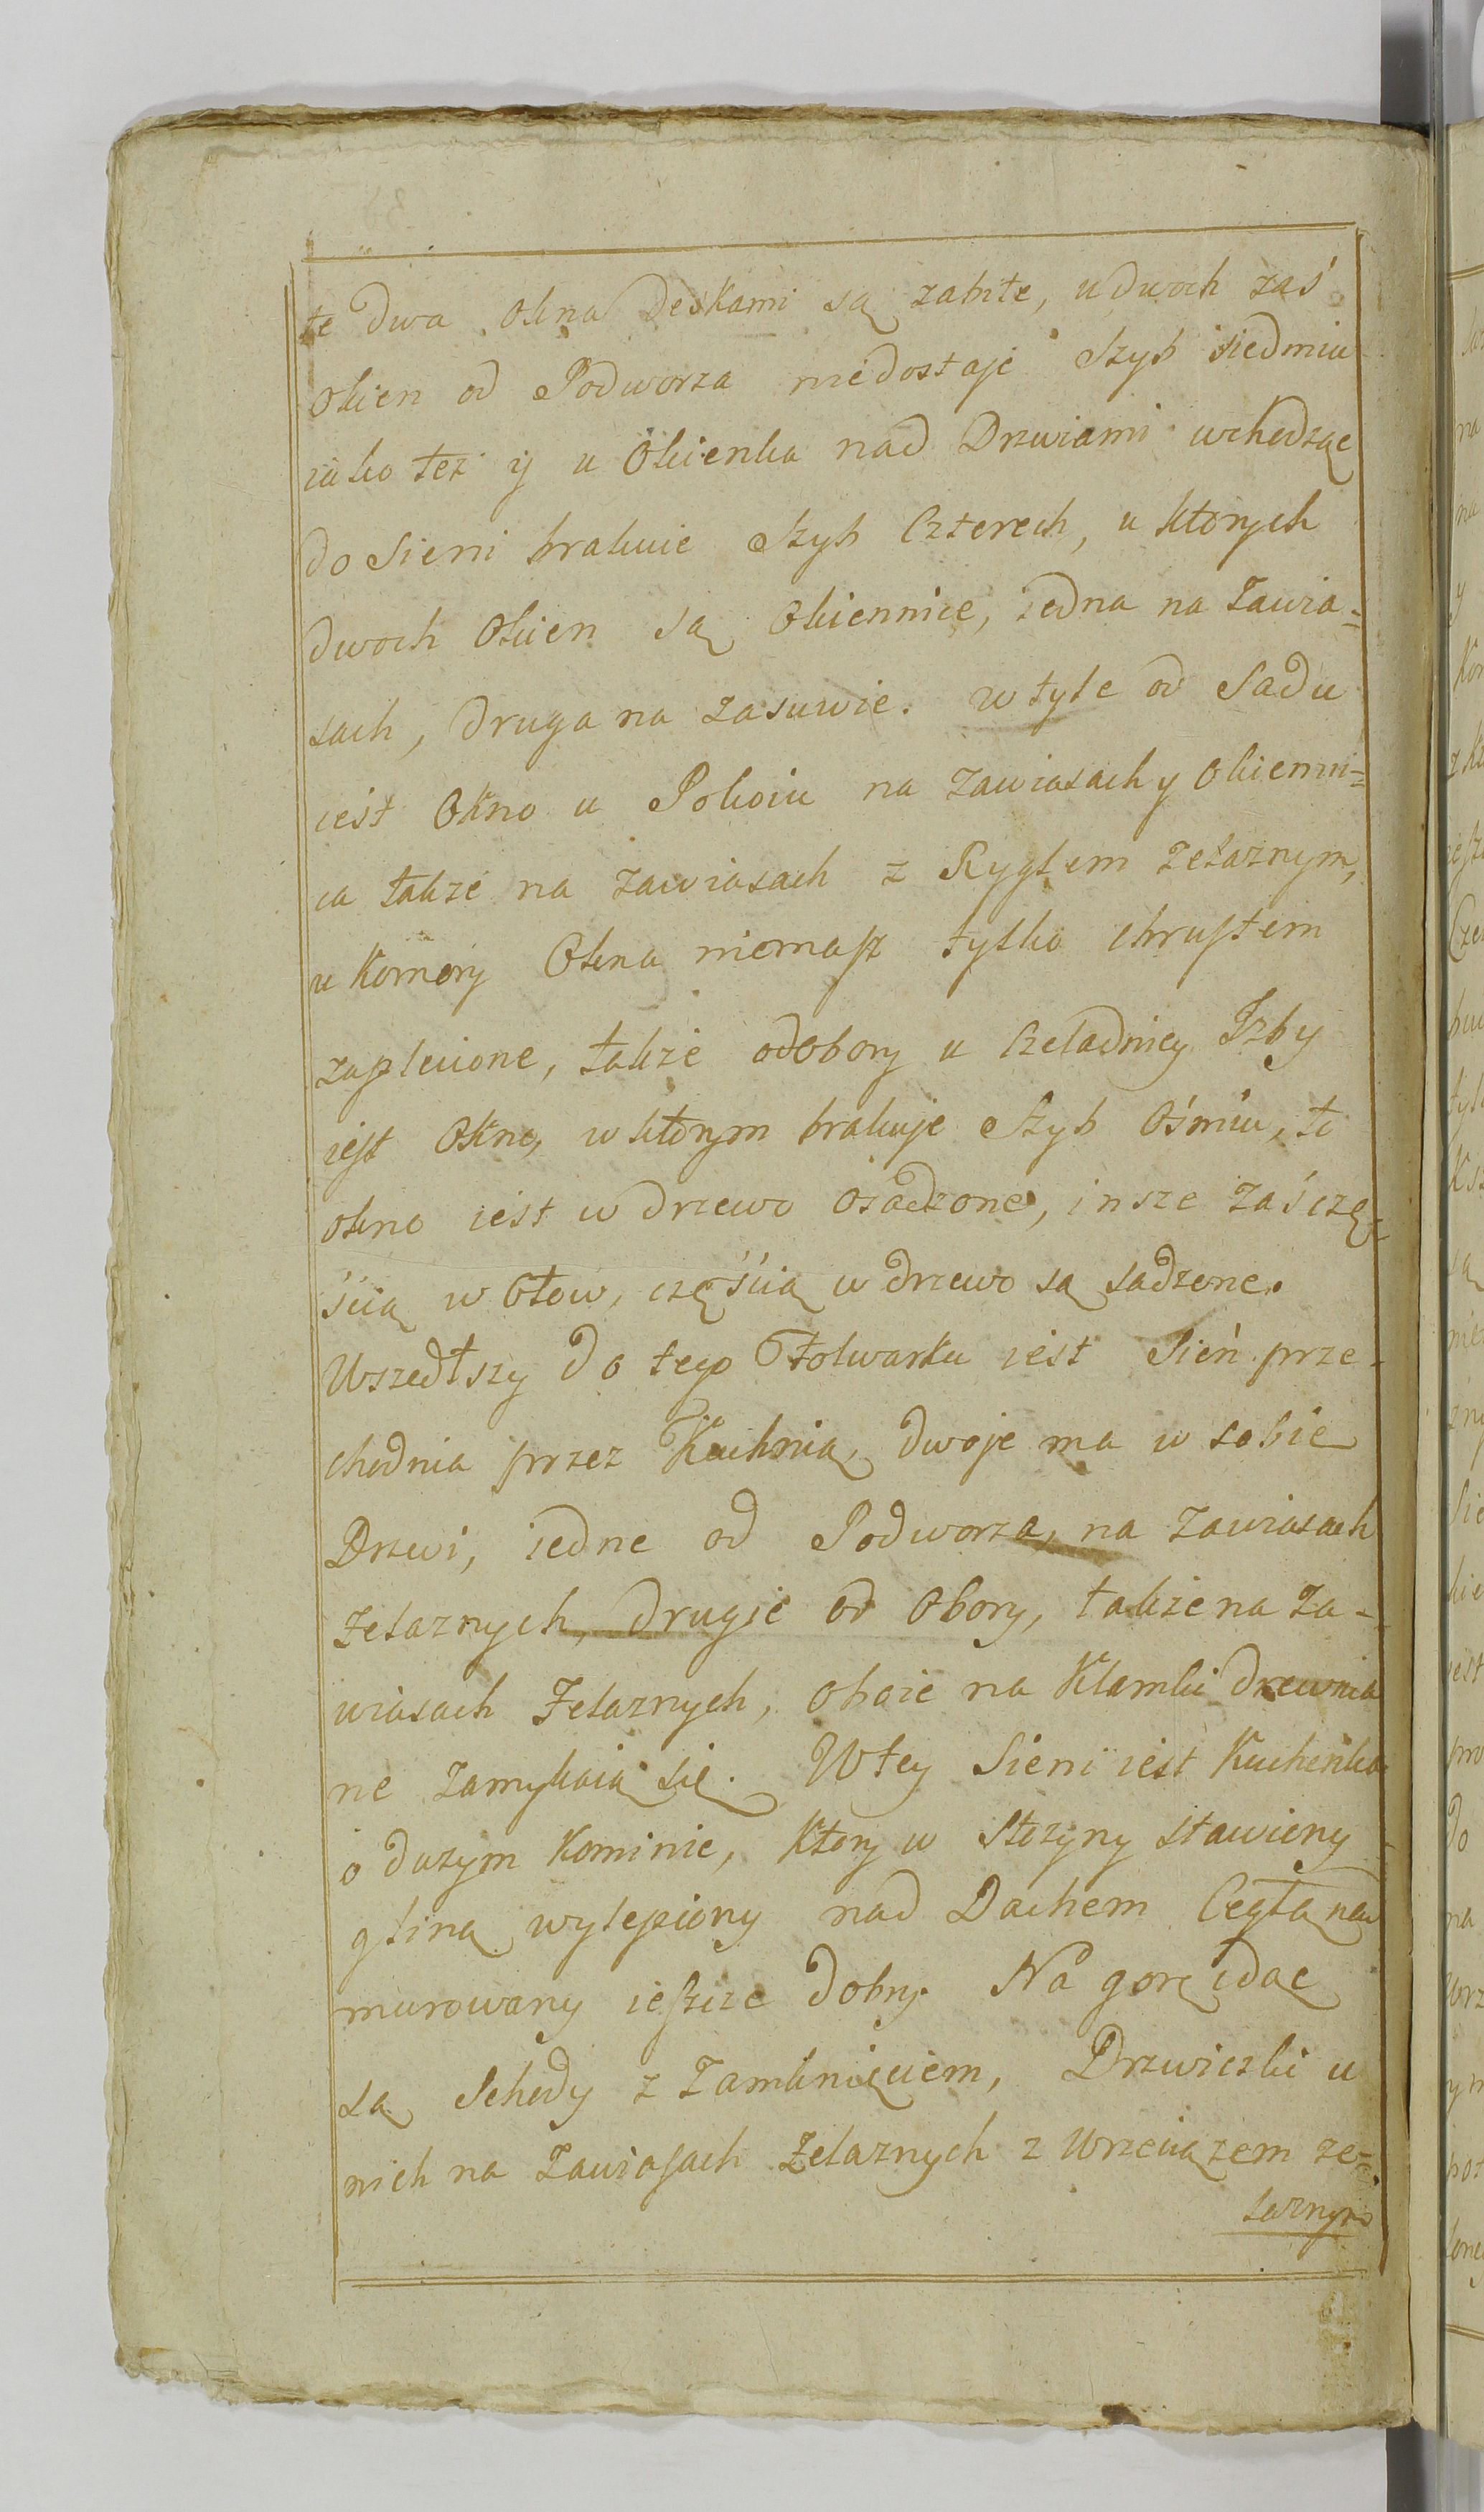 te dwa okna deskami są zabite, u dwoch zaś
Okien od Podworza niedostaje Szyb siedmiu
iako też y u Okienka nad Drzwiami wchodząc
do Sieni brakuie Szyb Czterech, u których
dwoch Okien są Okiennice, iedna na Zawia=
sach, druga na zasuwie. w tyle od Sadu
iest Okno u Pokoiu na zawiasach y Okienni=
ca także na zawiasach z Ryglem żelaznym,
u Komory Okna niemasz tylko chrustem
zaplecione, także od Obory u Czeladniey Izby
iest Okno, w którym brakuje Szyb Ośmiu, to
okno iest w drzewo osadzone, insze zaś czę-
ścią w Ołow, częścią w drzewo są sadzone.
Wszedłszy do tego Folwarku iest Sień prze-
chodnia przez Kuchnią, dwoje ma w sobie
Drzwi, iedne od Podworza, na Zawiasach
żelaznych, drugie od Obory, także na Za-
wiasach Żelaznych, oboie na Klamki drewnia
ne zamykaią się. W tey Sieni iest Kuchenka
o dużym Kominie, Ktory w Stożyny stawiony
gliną wylepiony nad Dachem Cegłą nad
murowany ieszcze dobry. Na gorę idąc
są Schody z Zamknięciem, Drzwiczki u
nich na Zawiasach Żelaznych z Wrzeciązem że-
laznym